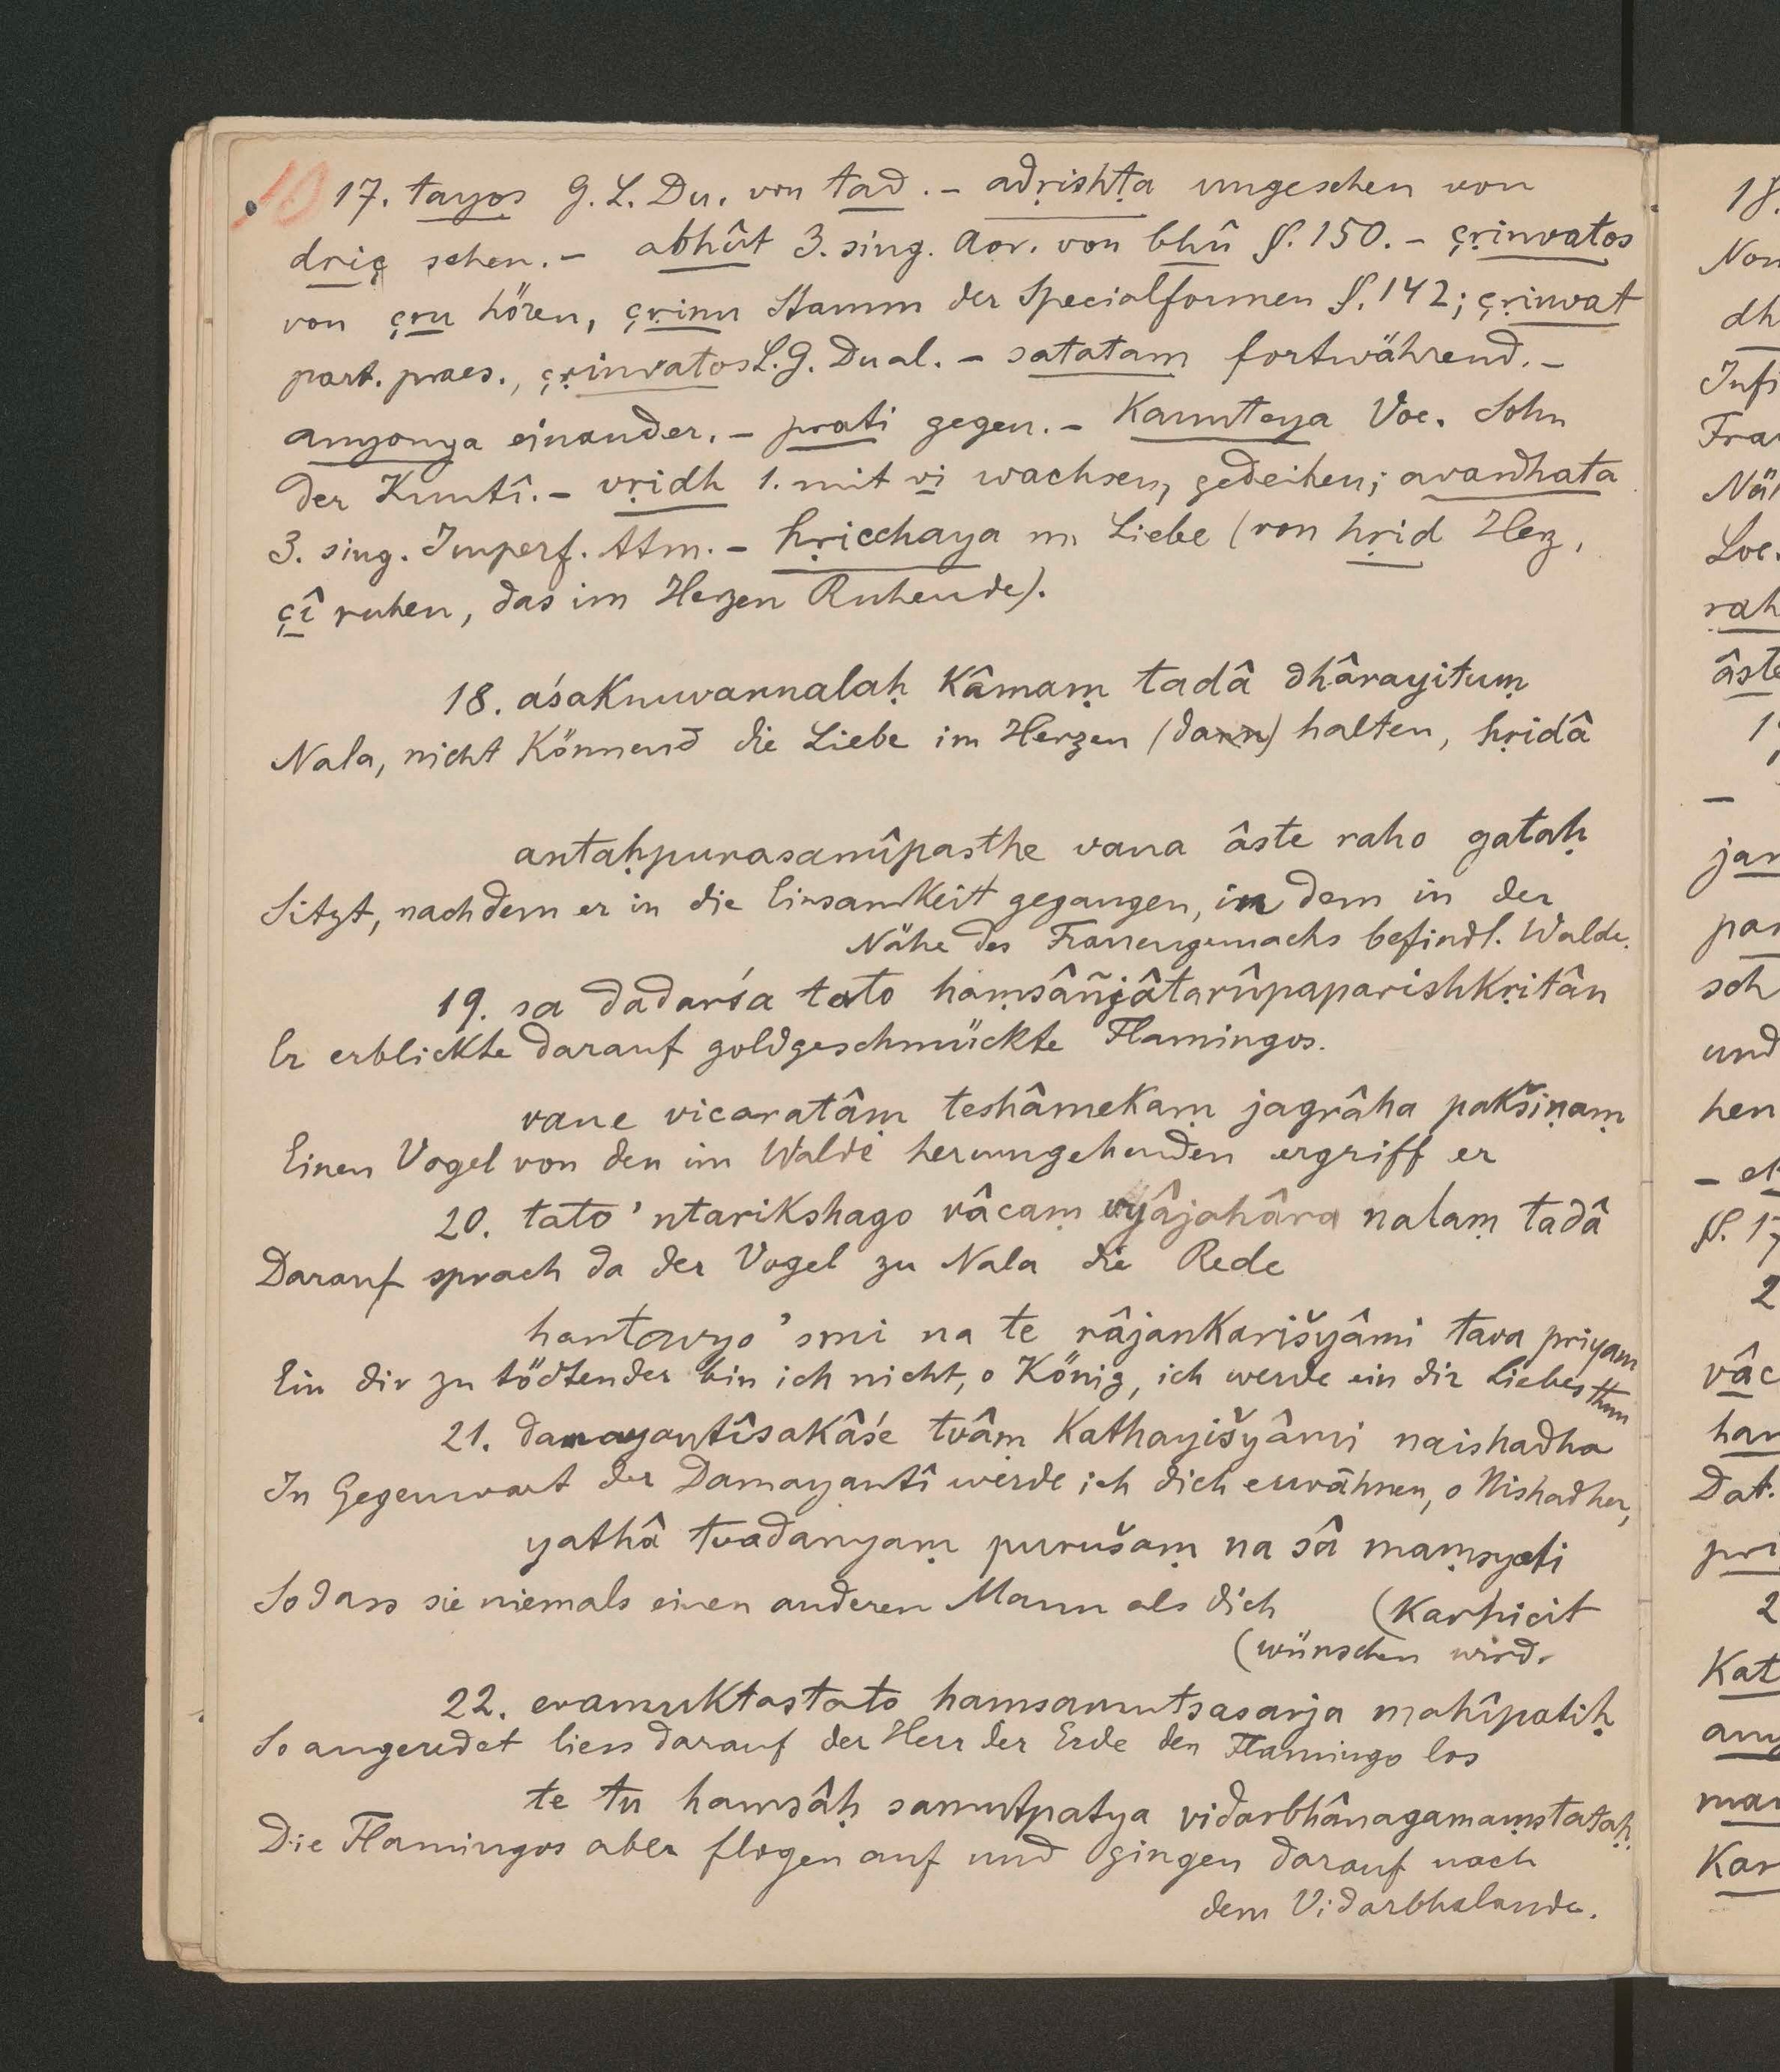 10 17. tayos G. L. Du. von tad. – adṛishṭa ungesehen von
driç sehen. – abhût 3. sing. Aor. von bhû §. 150. – çṛinvatos
von çru hören, çṛinu Stamm der Specialformen §. 142; çṛinvat
part. praes., çṛinvatos L. G. Dual. – satatam fortwährend. –
anyonya einander. – prati gegen. – Kaunteya Voc. Sohn
der Kuntî. – vṛidh 1. mit vi wachsen, gedeihen; avardhata
3. sing. Imperf. Atm. – hṛicchaya m. Liebe (von hṛid Herz,
çî ruhen, das im Herzen Ruhende).
18. aśaknuvannalaḥ Kâmaṃ tadâ dhârayituṃ
Nala, nicht Könnend die Liebe im Herzen (dann) halten, hṛidâ
antaḥpurasamîpasthe vana âste raho gataḥ
Sitzt, nachdem er in die Einsamkeit gegangen, in dem in der
Nähe des Frauengemachs befindl. Walde.
19. sa dadarśa tato haṃsâñjâtarûpaparishkṛitân
Er erblickte darauf goldgeschmückte Flamingos.
vane vicaratâṃ teshâmekaṃ jagrâha pakšiṇaṃ
Einen Vogel von den im Walde herumgehenden ergriff er
20. tato 'ntarikshago vâcaṃ vyâjahâra nalaṃ tadâ
Darauf sprach da der Vogel zu Nala die Rede
hantavyo 'smi na te râjankarišyâmi tava priyam
Ein dir zu tödtender bin ich nicht, o König, ich werde ein dir Liebes thun
21. damayantîsakâśe tvâṃ Kathayišyâmi naishadha
In Gegenwart der Damayantî werde ich dich erwähnen, o Nishadher,
yathâ tvadanyaṃ purušaṃ na sâ maṃsyati
So dass sie niemals einen anderen Mann als dich (Karhicit
(wünschen wird.
22. evamuktastato hamsamutsasarja mahîpatiḥ
So angeredet liess darauf der Herr der Erde den Flamingo los
te tu hamsâḥ samutpatya vidarbhânagamaṃstataḥ
Die Flamingos aber flogen auf und gingen darauf nach
dem Vidarbhalande.